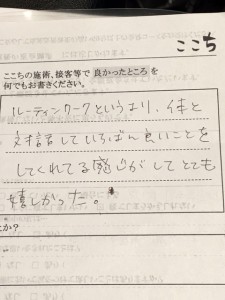 ここち
ここちの施術、接客等で良かったところを
何でもお書きください。
ルーティンワークというより、体と
対話していちばん良いことを
してくれてる感じがしてとても
嬉しかった。
とか?